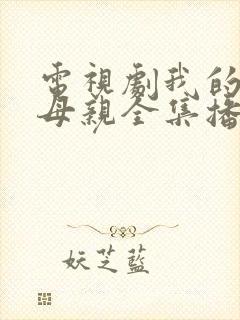 電視劇我的
母親全集播
妖芝藍